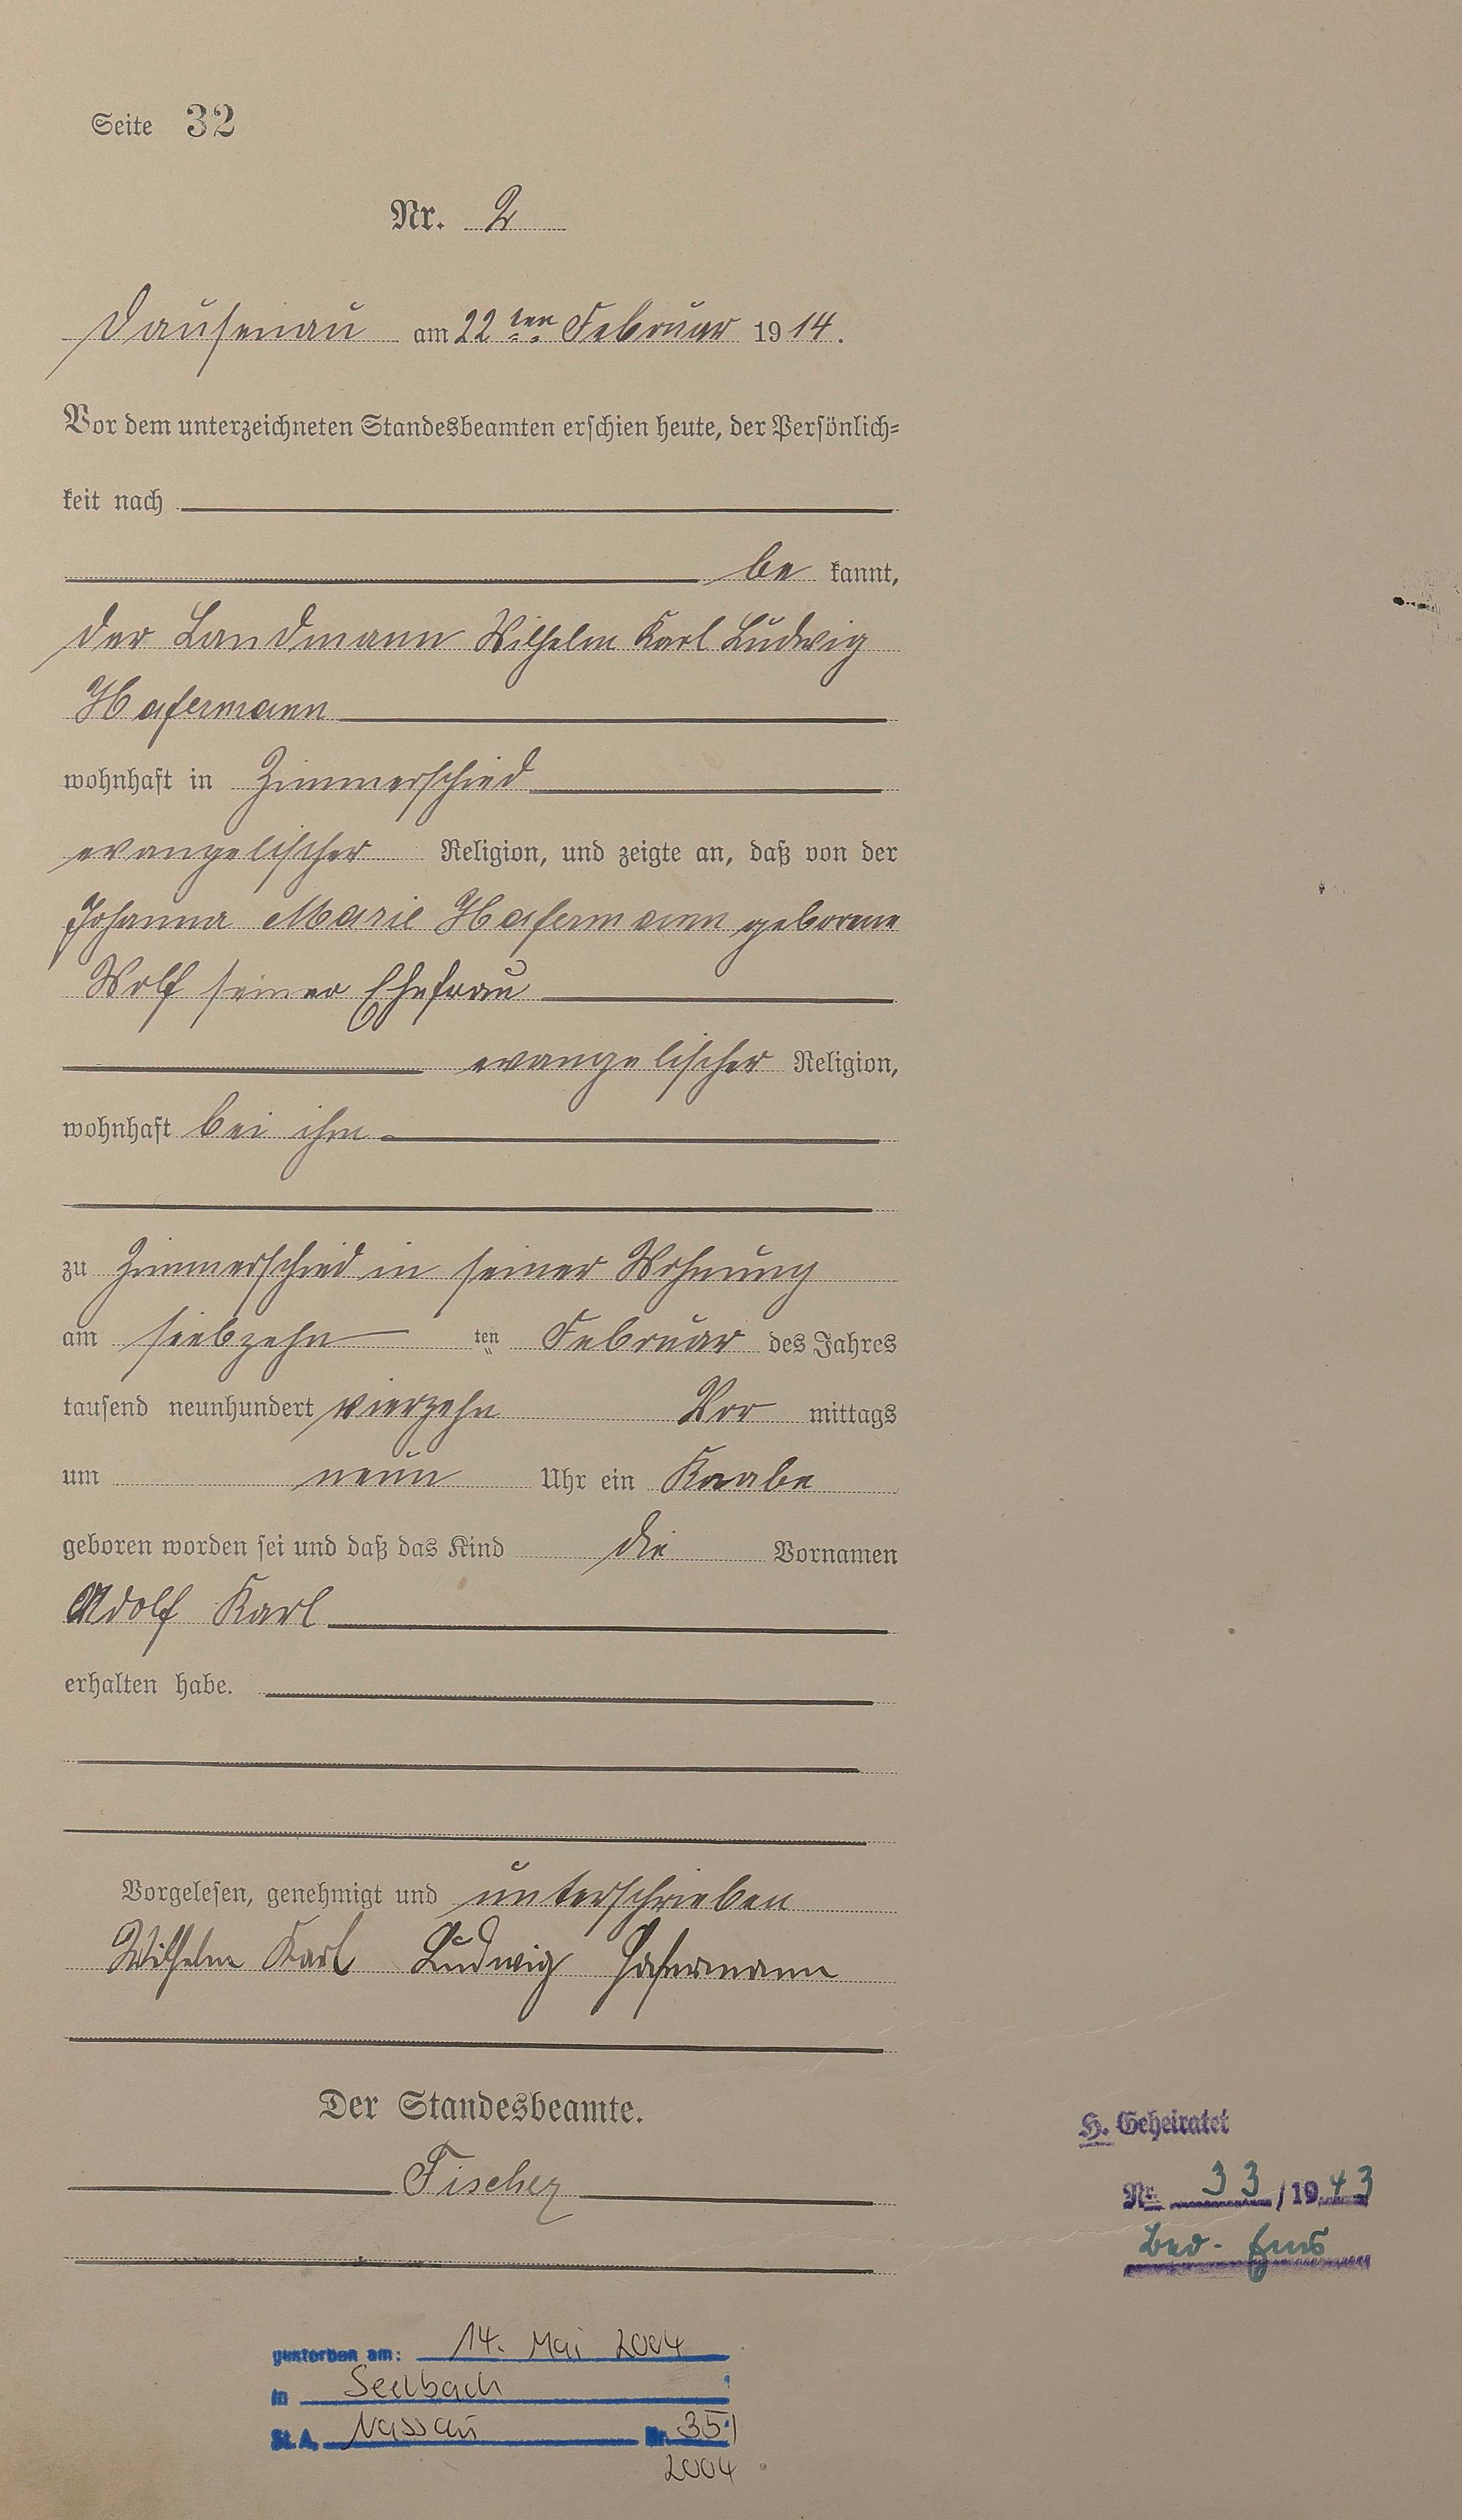 Seite 32
Nr. 2
Dausenau am 22ten Februar 1914.
Vor dem unterzeichneten Standesbeamten erschien heute, der Persönlich-
keit nach
be kannt,
der Landmann Wilhelm Karl Ludwig
Hafermann
wohnhaft in Zimmerschied
evangelischer Religion, und zeigte an, daß von der
Johanna Marie Hafermann geborene
Wolf seiner Ehefrau
evangelischer Religion,
wohnhaft bei ihm
zu Zimmerschied in seiner Wohnung
am siebzehn ten Februar des Jahres
tausend neunhundert vierzehn Vor mittags
um neun Uhr ein Knabe
geboren worden sei und daß das Kind die Vornamen
Adolf Karl
erhalten habe.
Vorgelesen, genehmigt und unterschrieben
Wilhelm Karl Ludwig Hafermann
Der Standesbeamte.
Fischer
H. Geheiratet
Nr. 33/1943
Bad-Ems
gestorben am: 14. Mai 2004
in Seelbach
St. A. Nassau Nr. 35/
2004